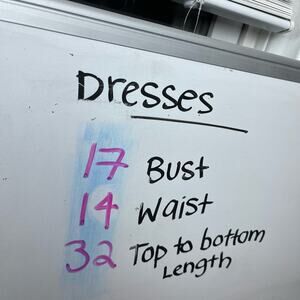 Dresses
17 Bust
14 Waist
32 Top to bottom
Length